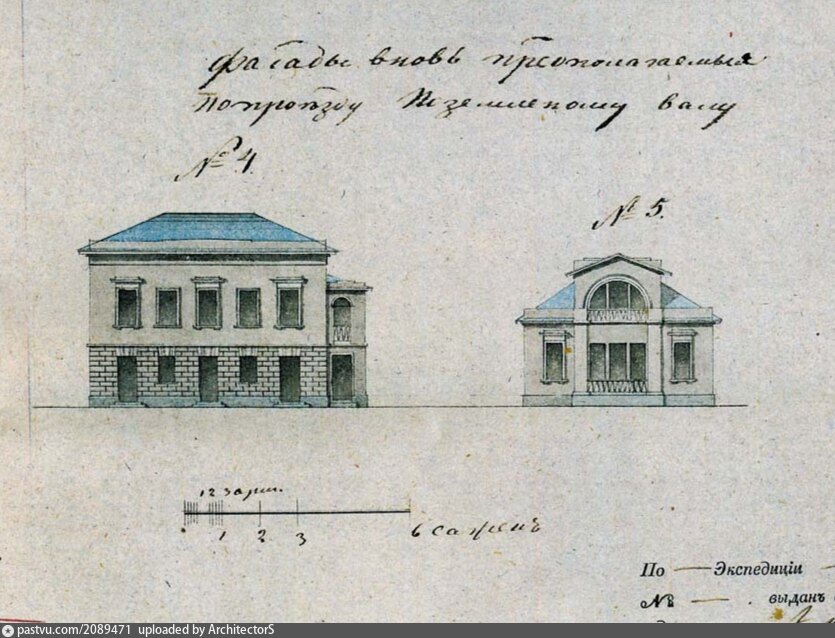 Фасады вновь предполагаемыя
По проѣзду Къ земляному валу
№ 4.
№ 5.
12 3 арши.
1 2 3
6 сажень
По — Экспедиціи —
№ — . выданъ
pastvu.com/2089471 uploaded by ArchitectorS